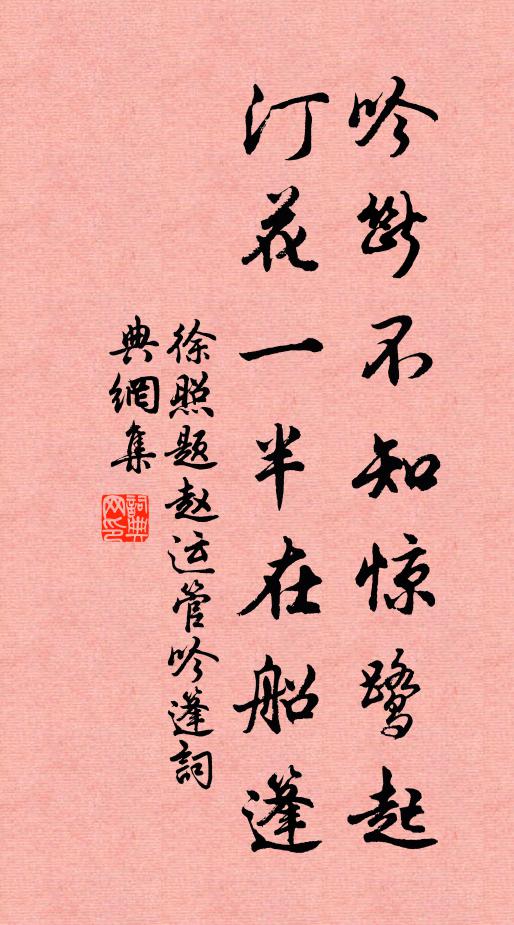 吟断不知惊鹭起
汀花一半在船篷
徐照题赵运管吟篷詞
典網集
詞典网印